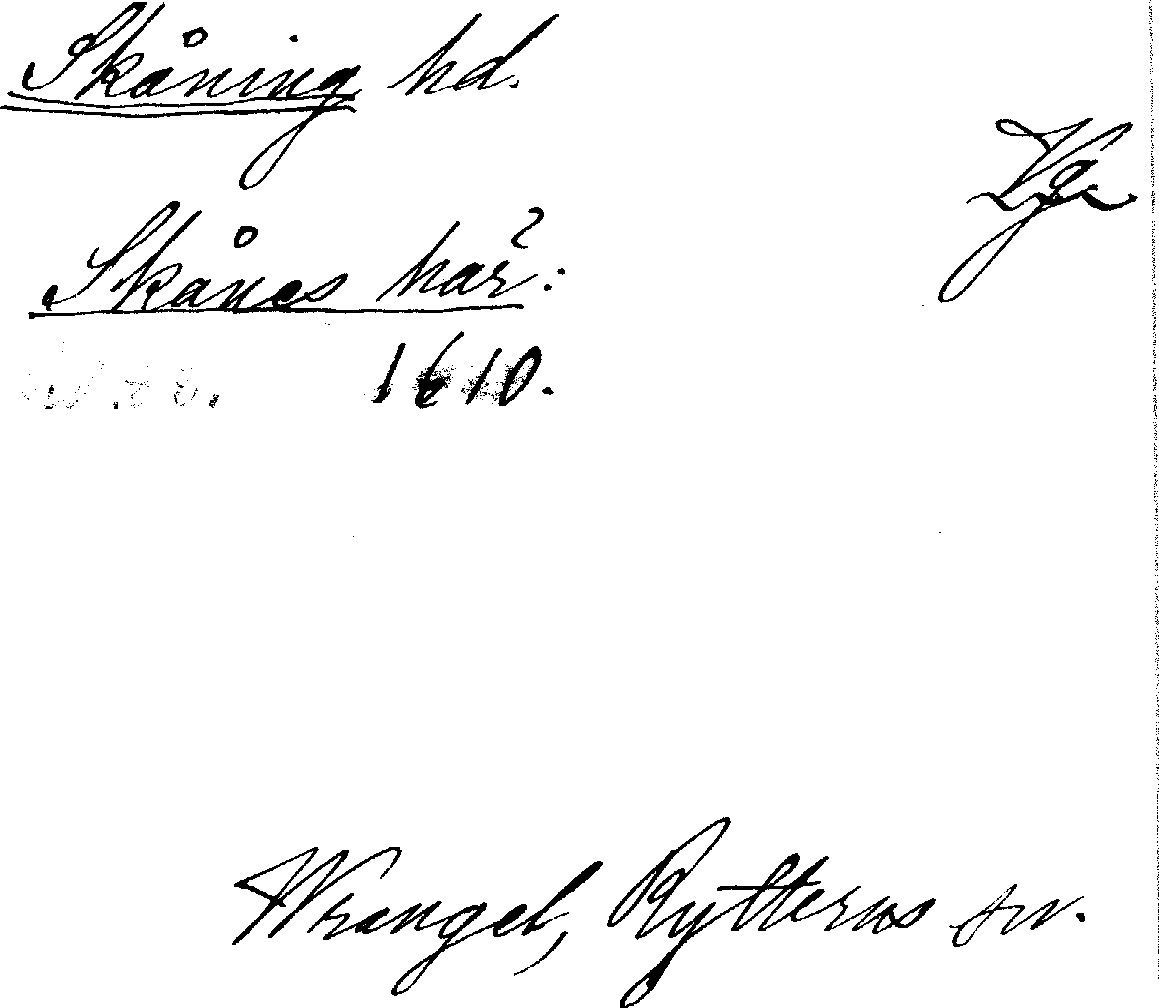 Skåning hd.
Vg.
Skånes här:
1610.
Wrangel, Rytterns